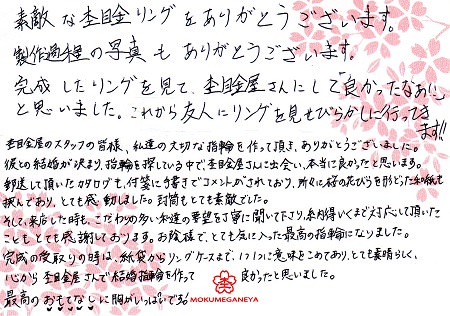 素敵な杢目金リングをありがとうございます。
製作過程の写真もありがとうございます。
完成したリングを見て、杢目金屋さんにして「良かったなぁ!!」
と思いました。これから友人にリングを見せびらかしに行ってき
ます!!
杢目金屋のスタッフの皆様、私達の大切な指輪を作って頂き、ありがとうございました。
彼との結婚が決まり、指輪を探している中で、杢目金屋さんに出会い、本当に良かったと思います。
郵送して頂いたカタログも、付箋に手書きでコメントがされており、所々に桜の花びらを形どった和紙も
挟んであり、とても感動しました。封筒もとても素敵でした。
そして、来店した時も、こだわりの多い私達の要望を丁寧に聞いて下り、末納得いくまで対応して頂いた
ことも とても感謝しております。お陰様で、とても気に入った最高の指輪になりました。
完成の受取りの時は、紙袋からリングケースまで、1つ1つに意味をこめてあり、とても素晴らしく、
心から 杢目金屋さんで結婚指輪を作って 良かったと思いました。
最高のおもてなしに胸がいっぱいです!
MOKUMEGANEYA